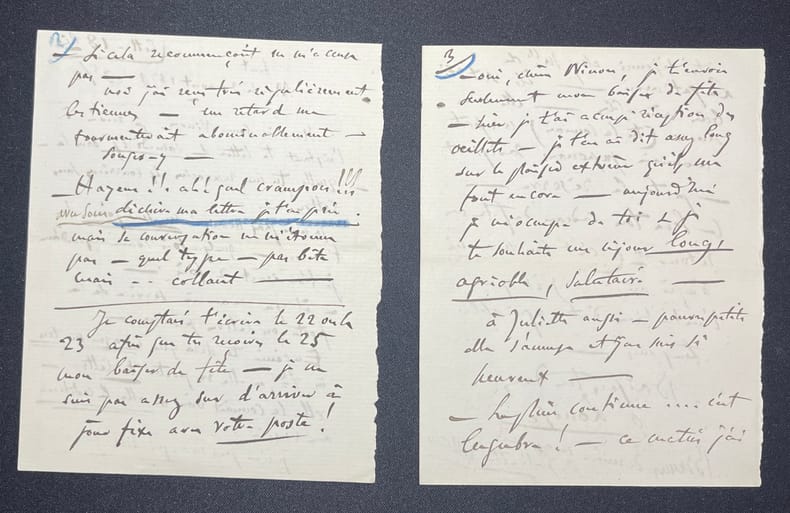 2
— Si cela recommençait ne m'accuse
pas —
moi j'ai reçu très régulièrement
les tiennes — un retard me
tourmenterait abominablement —
Songes-y —
— Hayem !! ah ! quel crampon !!!
déchire ma lettre je t'en prie.
mais sa conversation ne m'étonne
pas — quel type — pas bête
mais .. collant —
Je comptais t'écrire le 22 ou le
23 afin que tu reçoives le 25
mon baiser de fête — je ne
suis pas assez sur d'arriver à
jour fixe avec votre poste !
3
— oui, chère Ninon, je t'envoie
seulement mon baiser de fête
— hier je t'ai accusé réception des
œillets — je t'en ai dit assez long
sur le plaisir extrême qu'ils me
font encore — aujourd'hui
je m'occupe de toi & je
te souhaite un séjour long,
agréable, salutaire —
à Juliette aussi — pauvre petite
elle s'amuse et j'en suis si
heureux —
— La pluie continue ... c'est
lugubre ! — ce matin j'ai